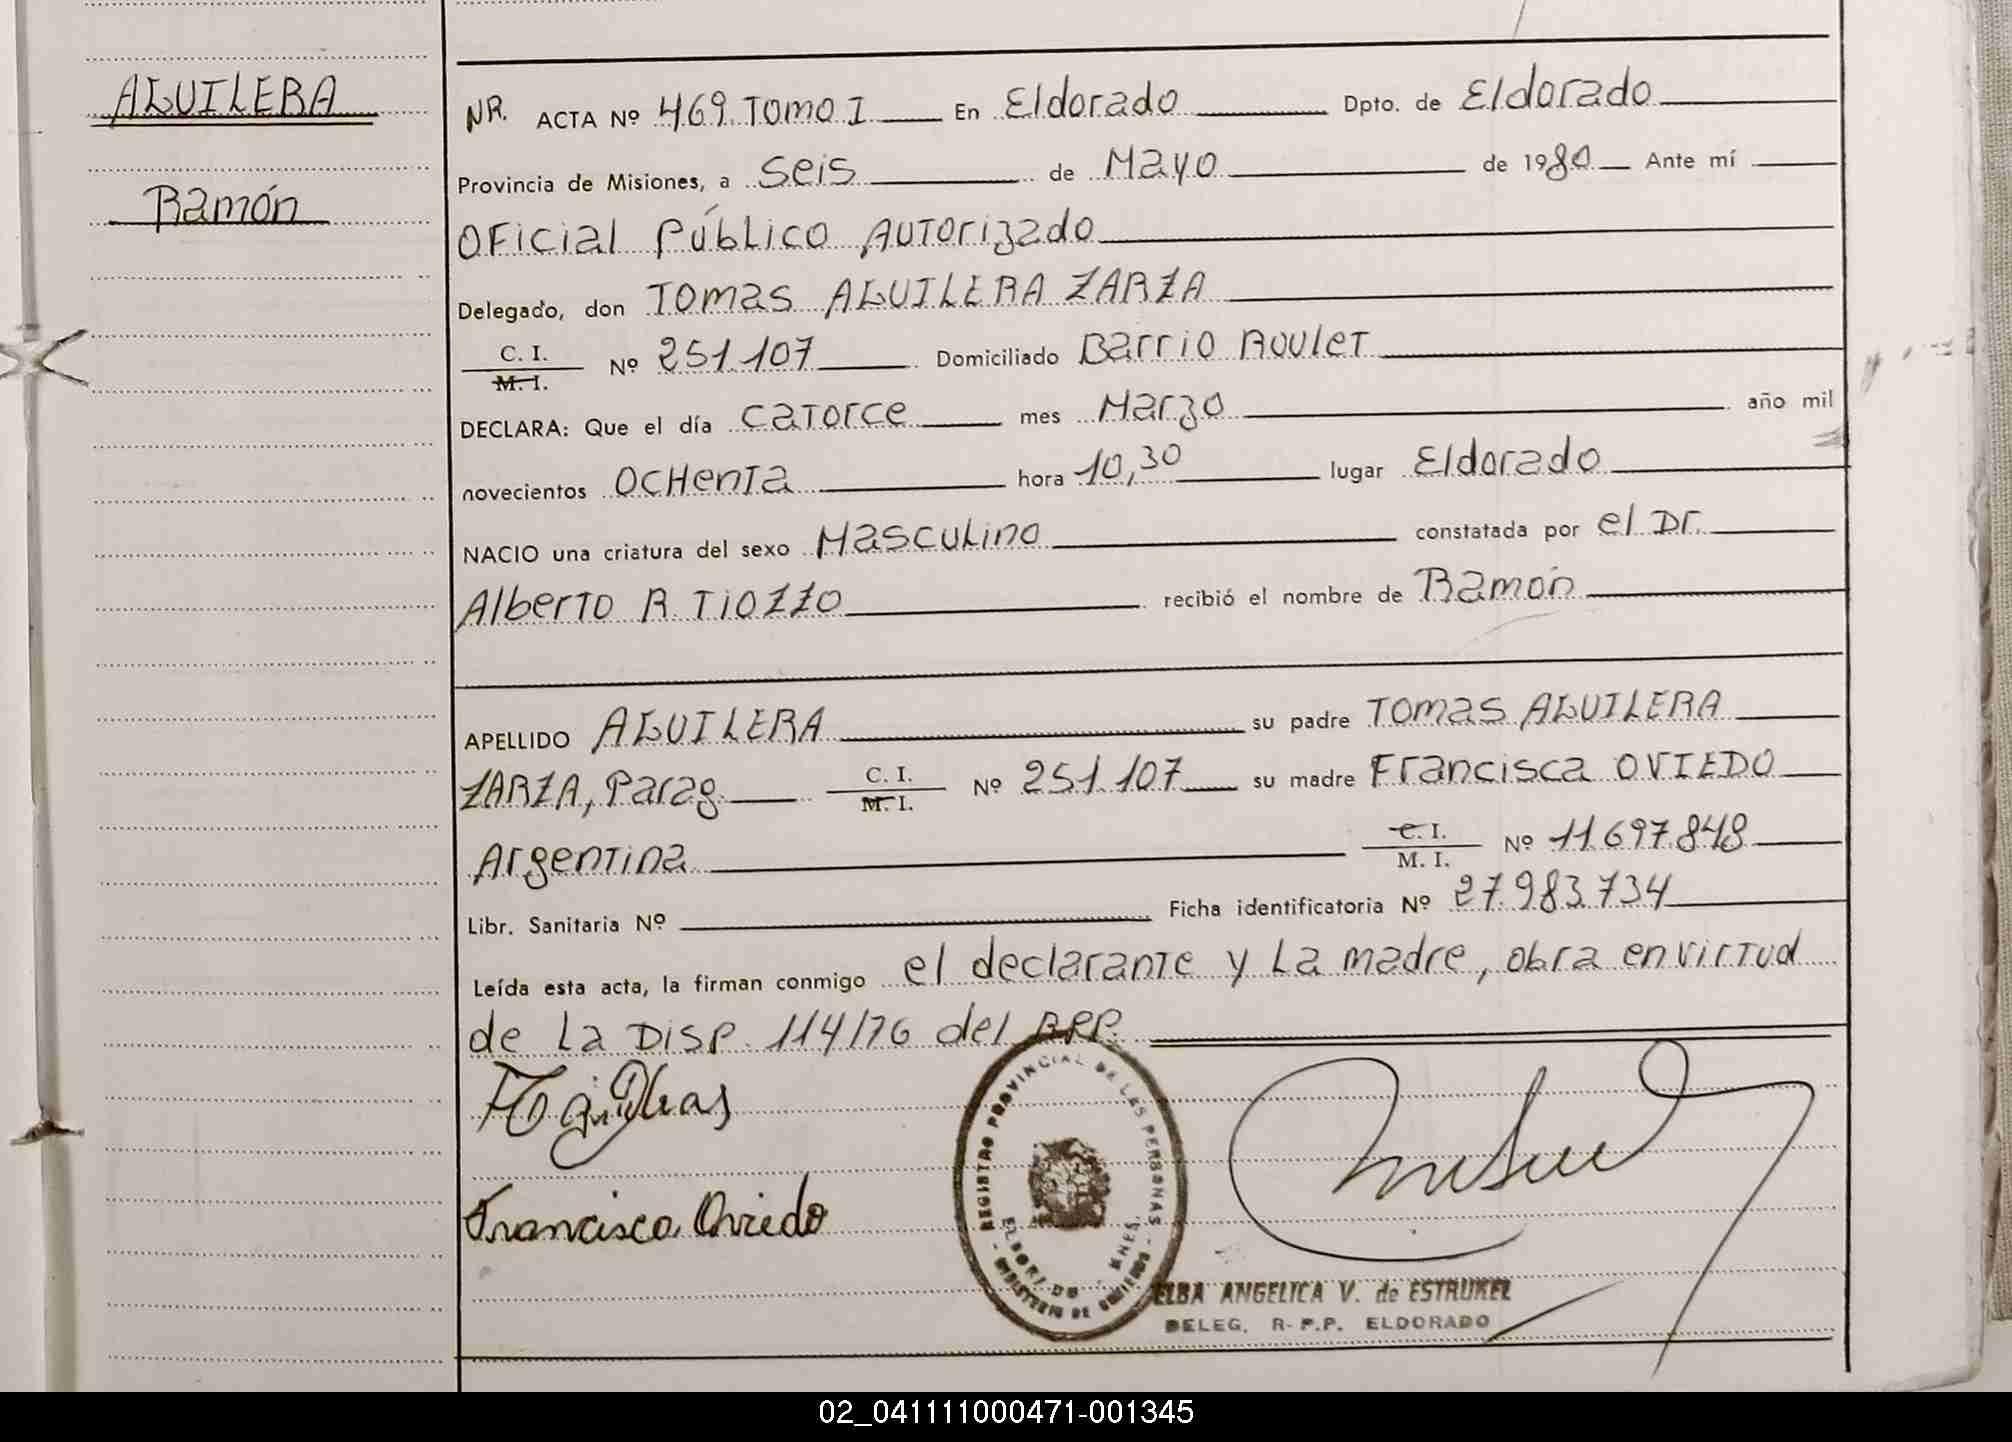 AGUILERA
Ramón
NR. ACTA Nº 469. TOMO I En Eldorado Dpto. de Eldorado
Provincia de Misiones, a seis de Mayo de 1980 Ante mí
Oficial Público Autorizado
Delegado, don Tomas AGUILERA ZARZA
C. I. / M. I. Nº 251.107 Domiciliado Barrio Roulet
DECLARA: Que el día catorce mes Marzo año mil
novecientos ochenta hora 10,30 lugar Eldorado
NACIO una criatura del sexo Masculino constatada por el Dr.
Alberto R. Tiozzo recibió el nombre de Ramón
APELLIDO AGUILERA su padre Tomas AGUILERA
ZARZA, Parag. C. I. / M. I. Nº 251.107 su madre Francisca OVIEDO
Argentina C. I. / M. I. Nº 11.697.848
Libr. Sanitaria Nº Ficha identificatoria Nº 27.983.734
Leída esta acta, la firman conmigo el declarante y la madre, obra en virtud
de la Disp. 114/76 del RPP.
Francisca Oviedo
REGISTRO PROVINCIAL DE LAS PERSONAS
ELDORADO - MNES.
- MINISTERIO DE GOBIERNO -
ELBA ANGELICA V. de ESTRUKEL
DELEG. R.P.P. ELDORADO
02_041111000471-001345